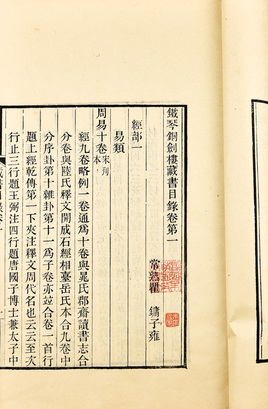 鐵琴銅劍樓藏書目錄卷第一
常熟瞿 鏞子雍
經部一
易類
周易十卷 宋刊本
經九卷略例一卷通爲十卷與晁氏郡齋讀書志合
分卷與陸氏釋文開成石經相臺岳氏本合九卷中
分序卦第十雜卦第十一爲子卷亦竝合卷一首行
題上經乾傳第一下夾注釋文周代名也云云至次
行止三行題王弼注四行題唐國子博士兼太子中